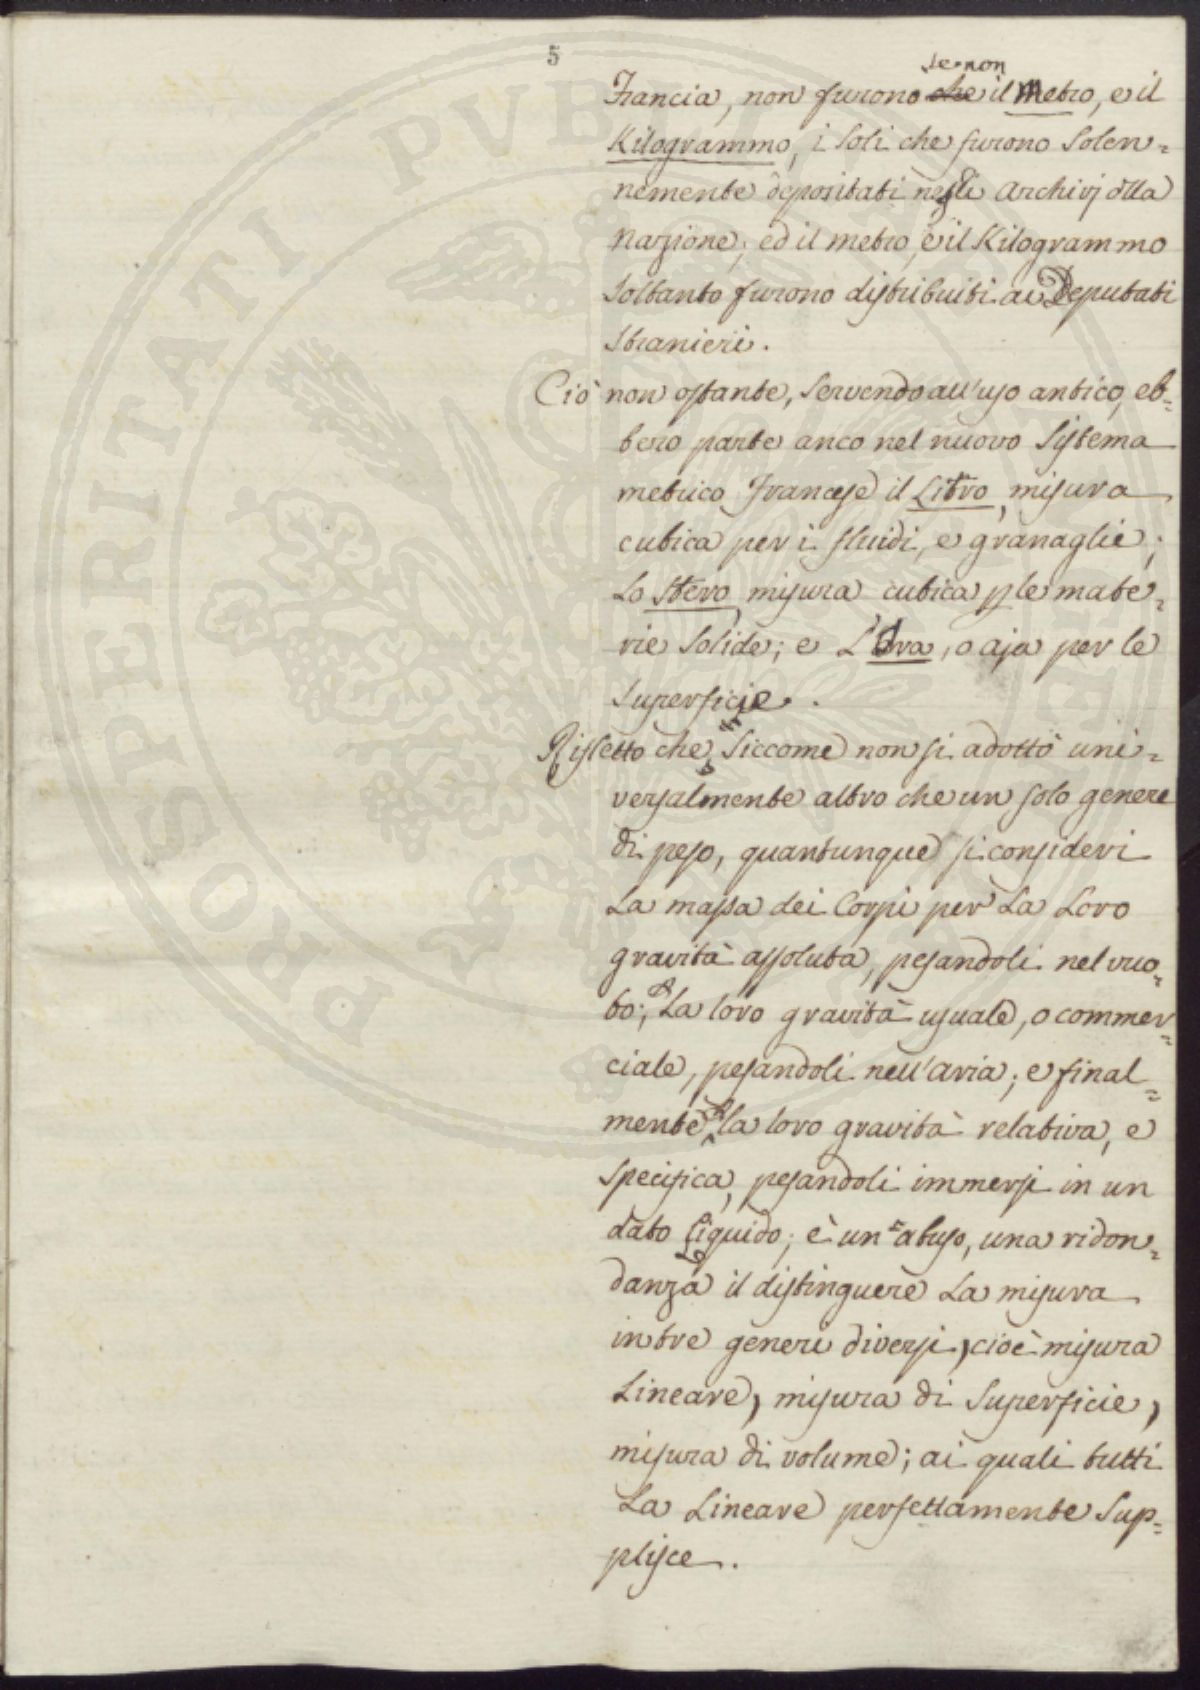 5
se non
Francia, non furono che il Metro, e il
Kilogrammo, i soli che furono solen=
nemente depositati negli Archivj dlla
Nazione; ed il metro, e il Kilogrammo
soltanto furono distribuiti ai Deputati
stranieri.
Ciò non ostante, servendo all'uso antico, eb=
bero parte anco nel nuovo Sistema
metrico Francese il Litro, misura
cubica per i fluidi, e granaglie;
Lo Stero, misura cubica p le mate=
rie solide; e L'Ara, o aja per le
superficie.
Rifletto che, siccome non si adottò uni=
versalmente altro che un solo genere
di peso, quantunque si consideri
La massa dei Corpi per La Loro
gravità assoluta, pesandoli nel vuo=
to; La loro gravità usuale, o commer=
ciale, pesandoli nell'aria; e final=
mente la loro gravità relativa, e
specifica, pesandoli immersi in un
dato Liquido; è un abuso, una ridon=
danza il distinguere La misura
in tre generi diversi, cioè misura
Lineare, misura di Superficie,
misura di volume; ai quali tutti
La Lineare perfettamente sup=
plisce.
PROSPERITATI PUBLICAE